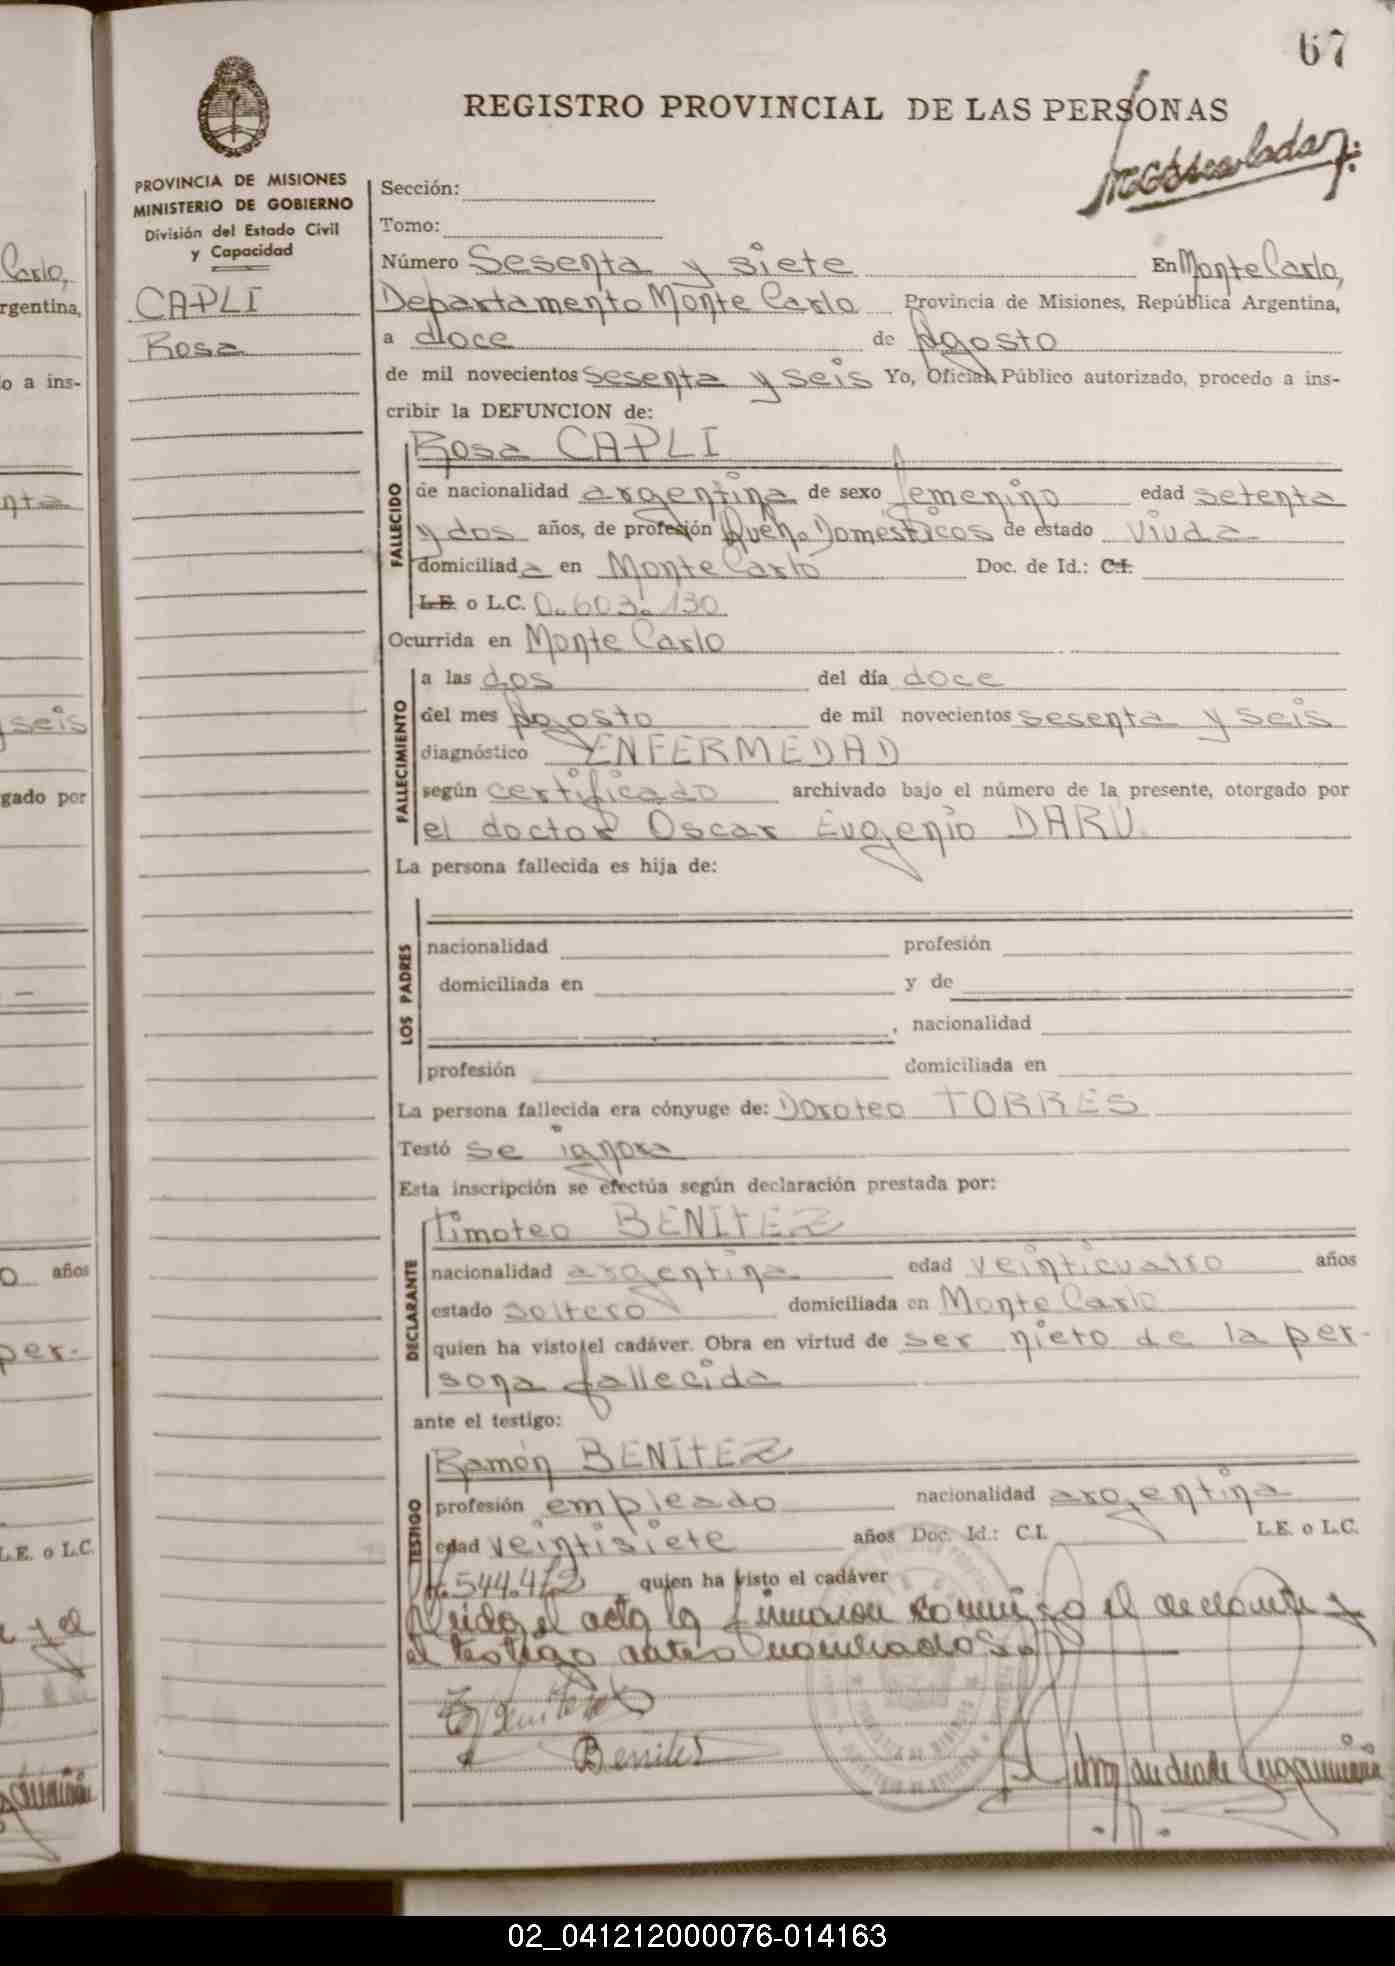 67
REGISTRO PROVINCIAL DE LAS PERSONAS
PROVINCIA DE MISIONES
MINISTERIO DE GOBIERNO
División del Estado Civil
y Capacidad
CAPLI
Rosa
Sección:
Tomo:
Número Sesenta y siete En Monte Carlo,
Departamento Monte Carlo Provincia de Misiones, República Argentina,
a doce de Agosto
de mil novecientos sesenta y seis Yo, Oficial Público autorizado, procedo a ins-
cribir la DEFUNCION de:
FALLECIDO
Rosa CAPLI
de nacionalidad argentina de sexo femenino edad setenta
y dos años, de profesión Queh. Domésticos de estado viuda
domiciliada en Monte Carlo Doc. de Id.: C.I.
L.E. o L.C. 0.603.130
Ocurrida en Monte Carlo
FALLECIMIENTO
a las dos del día doce
del mes Agosto de mil novecientos sesenta y seis
diagnóstico ENFERMEDAD
según certificado archivado bajo el número de la presente, otorgado por
el doctor Oscar Eugenio DARU
La persona fallecida es hija de:
LOS PADRES
nacionalidad profesión
domiciliada en y de
, nacionalidad
profesión domiciliada en
La persona fallecida era cónyuge de: Doroteo TORRES
Testó se ignora
Esta inscripción se efectúa según declaración prestada por:
DECLARANTE
Timoteo BENITEZ
nacionalidad argentina edad veinticuatro años
estado soltero domiciliada en Monte Carlo
quien ha visto el cadáver. Obra en virtud de ser nieto de la per-
sona fallecida
ante el testigo:
TESTIGO
Ramón BENITEZ
profesión empleado nacionalidad argentina
edad veintisiete años Doc. Id.: C.I. L.E. o L.C.
quien ha visto el cadáver
el acta la firmaron conmigo el declarante y
el testigo antes nombrados
Benitez
Carlo,
rgentina,
o a ins-
nta
y seis
gado por
o años
per-
L.E. o L.C.
y el
02_041212000076-014163